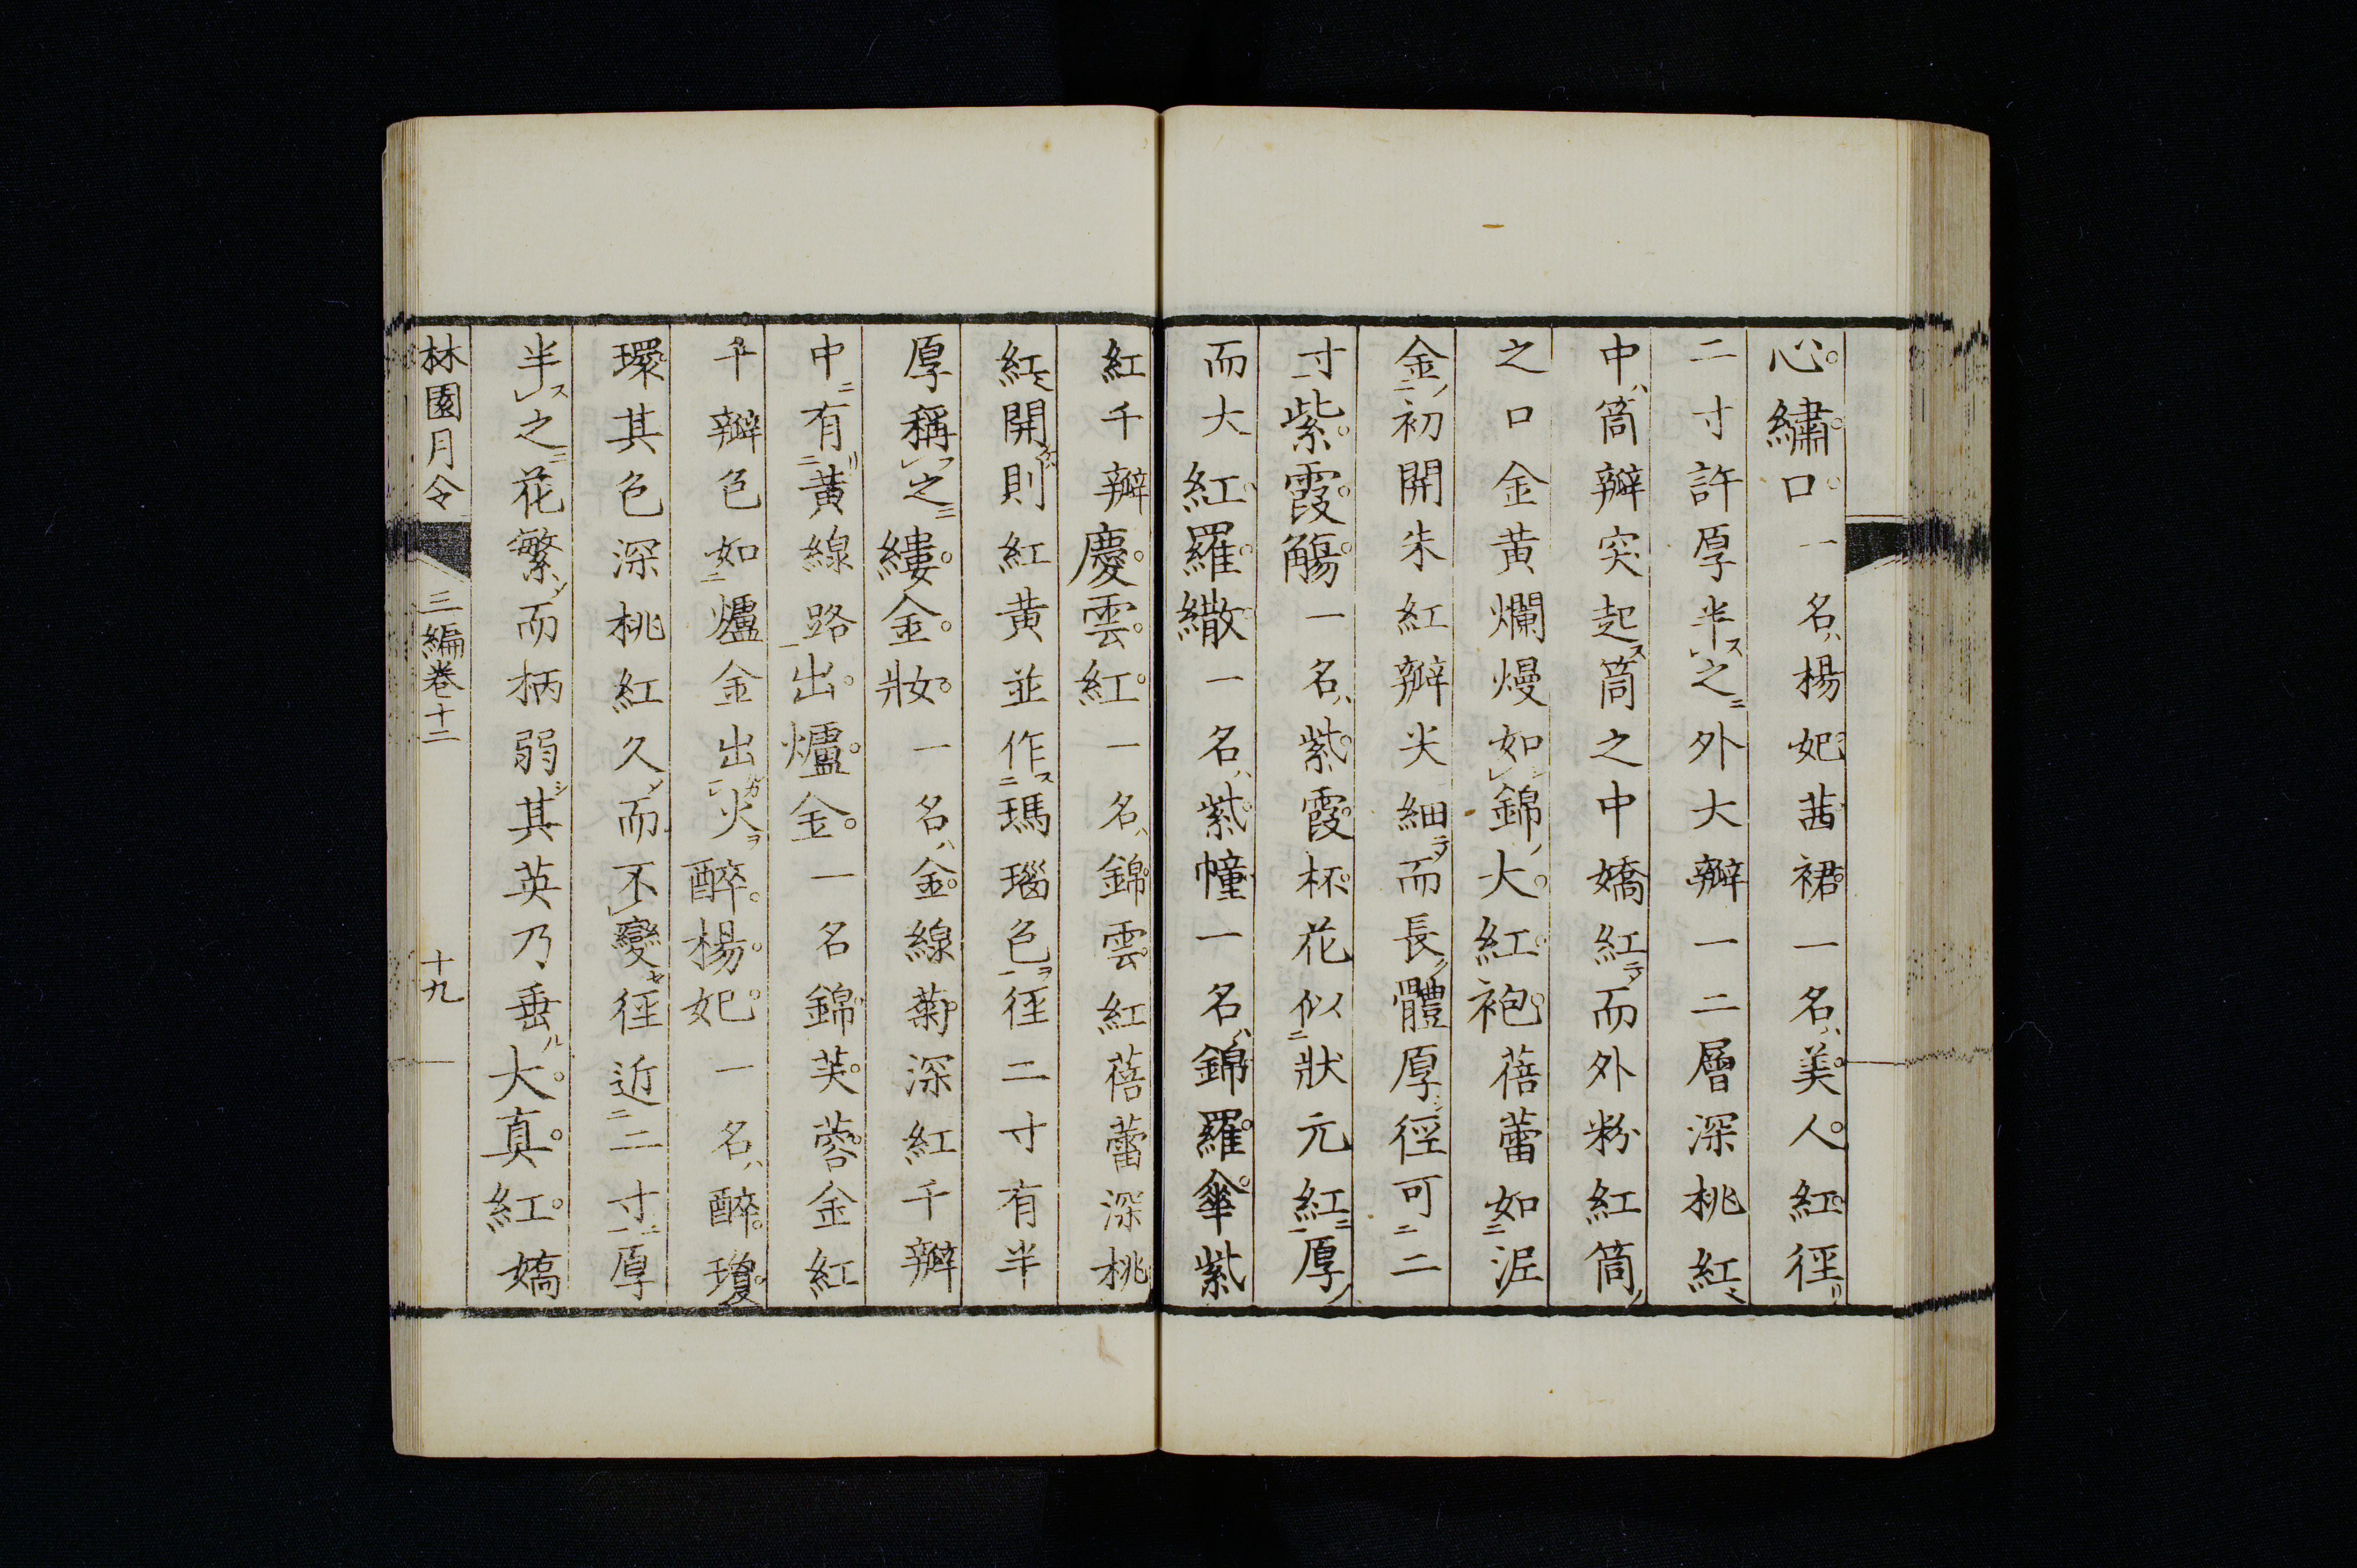 心繡口一名楊妃茜裙一名美人紅徑
二寸許厚半之外大瓣一二層深桃紅
中筒瓣突起筒之中嬌紅而外粉紅筒
之口金黄爛熳如錦大紅袍蓓蕾如泥
金初開朱紅瓣尖細而長體厚徑可二
寸紫霞觴一名紫霞杯花似狀元紅厚
而大紅羅繖一名紫幢一名錦羅傘紫
紅千瓣慶雲紅一名錦雲紅蓓蕾深桃
紅開則紅黄並作瑪瑙色徑二寸有半
厚稱之縷金妝一名金線菊深紅千瓣
中有黄線路出爐金一名錦芙蓉金紅
千瓣色如爐金出火醉楊妃一名醉瓊
環其色深桃紅久而不變徑近二寸厚
半之花繁而柄弱其英乃垂大真紅嬌
林園月令 三編卷十二 十九